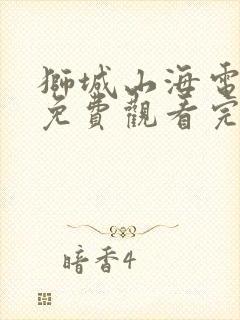 獅城山海電
免費觀看完
暗香4